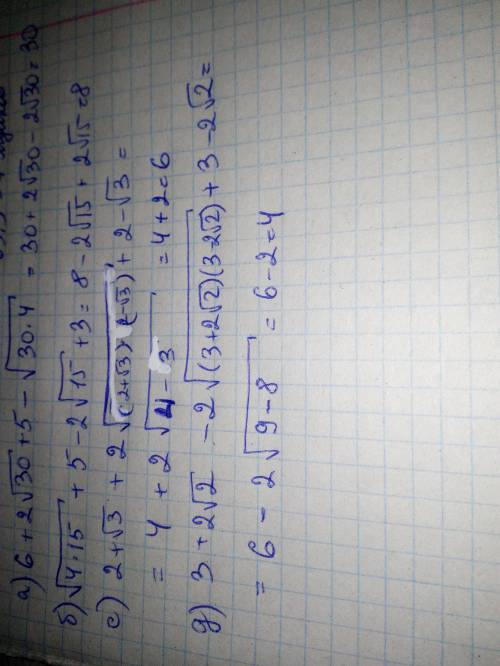 а) 6 + 2√30 + 5 - √30·4 = 30 + 2√30 - 2√30 = 30
б) √4·15 + 5 - 2√15 + 3 = 8 - 2√15 + 2√15 = 8
с) 2+√3 + 2√(2+√3)·(2-√3) + 2 - √3 =
= 4 + 2√4 - 3 = 4 + 2 = 6
д) 3 + 2√2 - 2√(3+2√2)(3-2√2) + 3 - 2√2 =
= 6 - 2√9 - 8 = 6 - 2 = 4